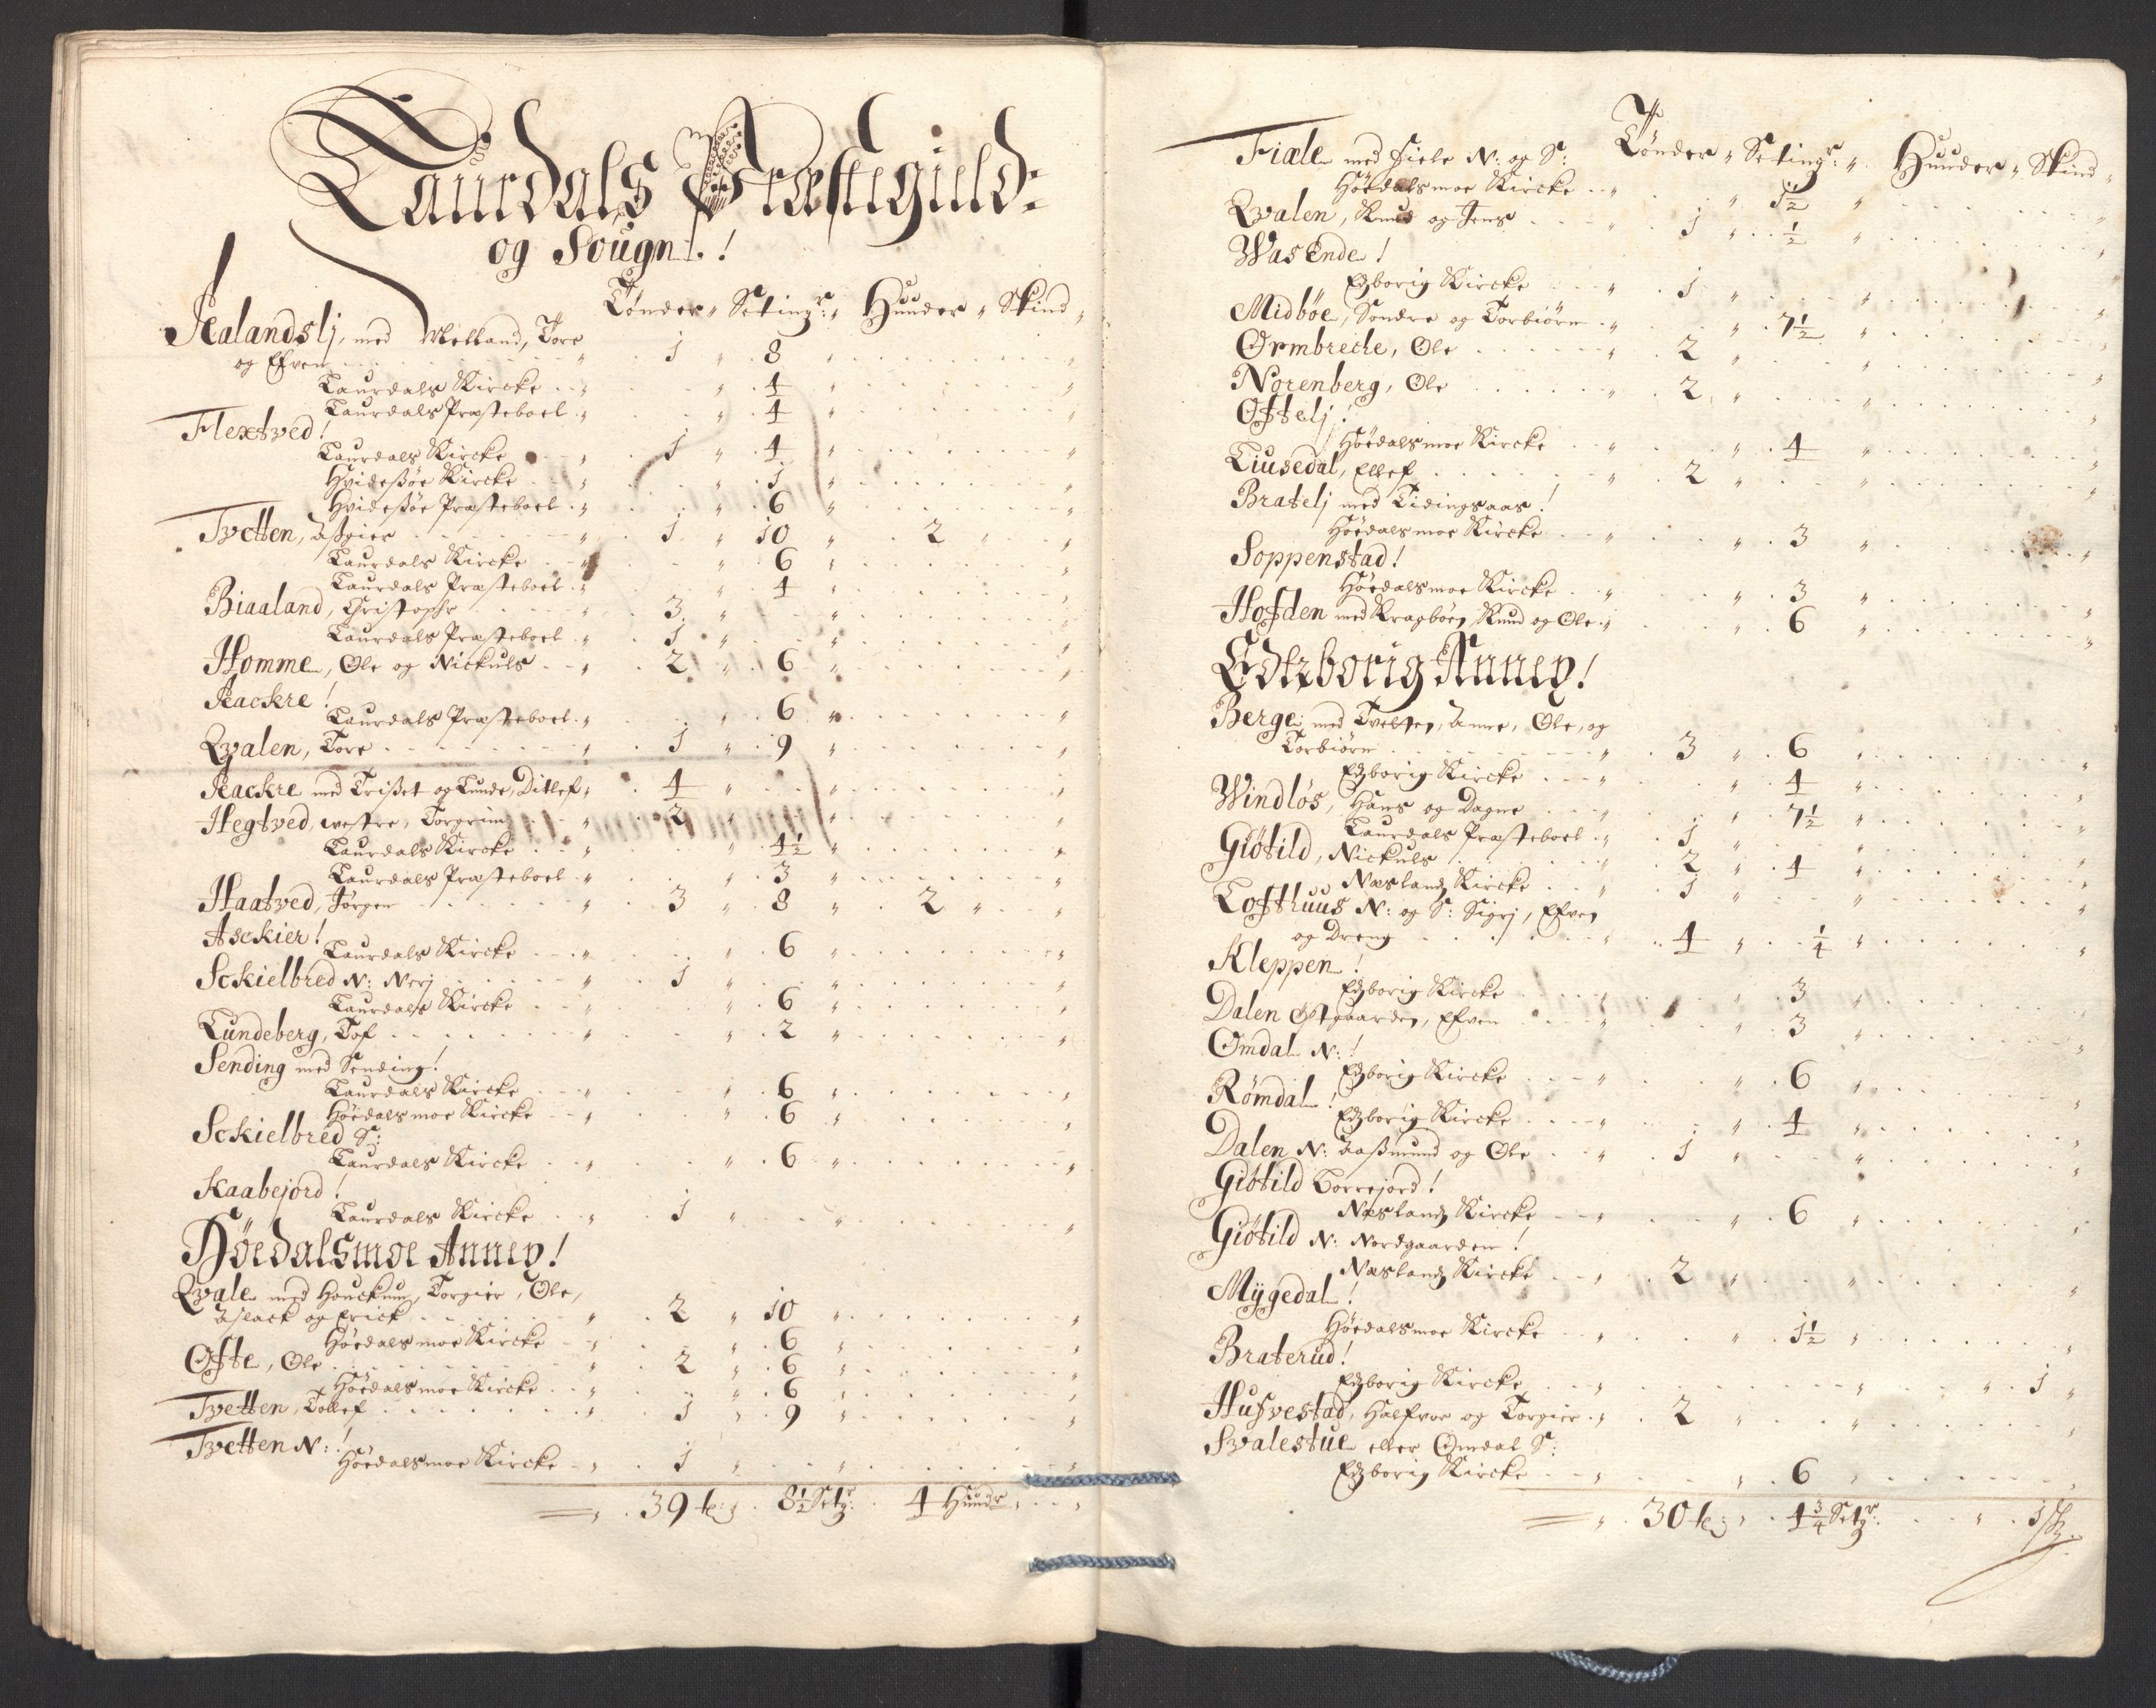 Laurdals Præstegield:
og Sougn!
Tønder " Setingr: " Huuder " Skind "
Aalandslj, med Melland, Tore
og Efven " 1 " 8 " "
Laurdals Kircke " " 4 " "
Laurdals Præsteboel " " 4 " "
Flextved!
Laurdals Kircke " 1 " 4 " "
Hvidesøe Kircke " " 1 " "
Hvidesøe Præsteboel " " 6 " "
Tvetten, Asgier " 1 " 10 " 2 " "
Laurdals Kircke " " 6 " "
Laurdals Præsteboel " " 4 " "
Biaaland, Christopher " 3 " " "
Laurdals Præsteboel " 1 " " "
Homme, Ole og Nickuls " 2 " 6 " "
Aackre!
Laurdals Præsteboel " " 6 " "
Qvalen, Tore " 1 " 9 " "
Aackre med Trisæt og Lunde, Ditlef " 4 " " "
Hegtved, westre, Torgrim " 2 " " "
Laurdals Kircke " " 4½ " "
Laurdals Præsteboel " " 3 " "
Haatved, Jørgen " 3 " 8 " 2 " "
Asckier!
Laurdals Kircke " " 6 " "
Sckielbred N: Nerj " 1 " " "
Laurdals Kircke " " 6 " "
Lundeberg, Tof " " 2 " "
Sending med Sending!
Laurdals Kircke " " 6 " "
Høedalsmoe Kircke " " 6 " "
Sckielbred S:
Laurdals Kircke " " 6 " "
Kaabejord!
Laurdals Kircke " 1 " " "
Høedalsmoe Annex!
Qvale med Houckum, Torgier, Ole,
Aslack og Erick " 2 " 10 " "
Høedalsmoe Kircke " " 6 " "
Ofte, Ole " 2 " 6 " "
Høedalsmoe Kircke " " 6 " "
Tvetten, Tollef " 1 " 9 " "
Tvetten N:!
Høedalsmoe Kircke " 1 " " "
39 t: " 8½ Setgr: 4 Hudr " "
Tønder " Setingr: " Huuder " Skind "
Fiæle med Fiele N: og S:
Høedalsmoe Kircke " " 1½ " "
Qvalen, Knud og Jens " 1 " ½ " "
Wasende!
Edzborig Kircke " 1 " " "
Midbøe, Sondre og Torbiørn " " 7½ " "
Ormbrecke, Ole " 2 " " "
Norenberg, Ole " 2 " " "
Oftelj!
Høedalsmoe Kircke " " 4 " "
Liusedal, Ellef " 2 " " "
Bratelj med Tidingsaas!
Høedalsmoe Kircke " " 3 " "
Soppenstad!
Høedalsmoe Kircke " " 3 " "
Hofden med Kragbøen, Knud og Ole " " 6 " "
Edtzborig Annex!
Berge med Tvelten, Anne, Ole, og
Torbiørn " 3 " 6 " "
Edzborig Kircke " " 4 " "
Windløs, Hans og Dagne " " 7½ " "
Laurdals Præsteboel " 1 " " "
Giøtild, Nickuls " 2 " 4 " "
Næslandz Kircke " 1 " " "
Lofthuus N: og S: Sigrj, Efven
og Dreng " 4 " ¼ " "
Kleppen!
Edzborig Kircke " " 3 " "
Dalen Østgaarden, Efven " " 3 " "
Omdal N:!
Edzborig Kircke " " 6 " "
Römdal!
Edzborig Kircke " " 4 " "
Dalen N: Aasmund og Ole " 1 " " "
Giøtild Borrejord!
Næslandz Kircke " " 6 " "
Giøtild N: Nordgaarden!
Næslandz Kircke " 2 " " "
Mygedal!
Høedalsmoe Kircke " " 1½ " "
Braterud!
Edzborig Kircke " " " 1 "
Hufvestad, Halfvor og Torgier " 2 " " "
Svalestue eller Omdal S:
Edzborig Kircke " " 6 " "
30 t: " 4¾ Setgr: " 1 sk: